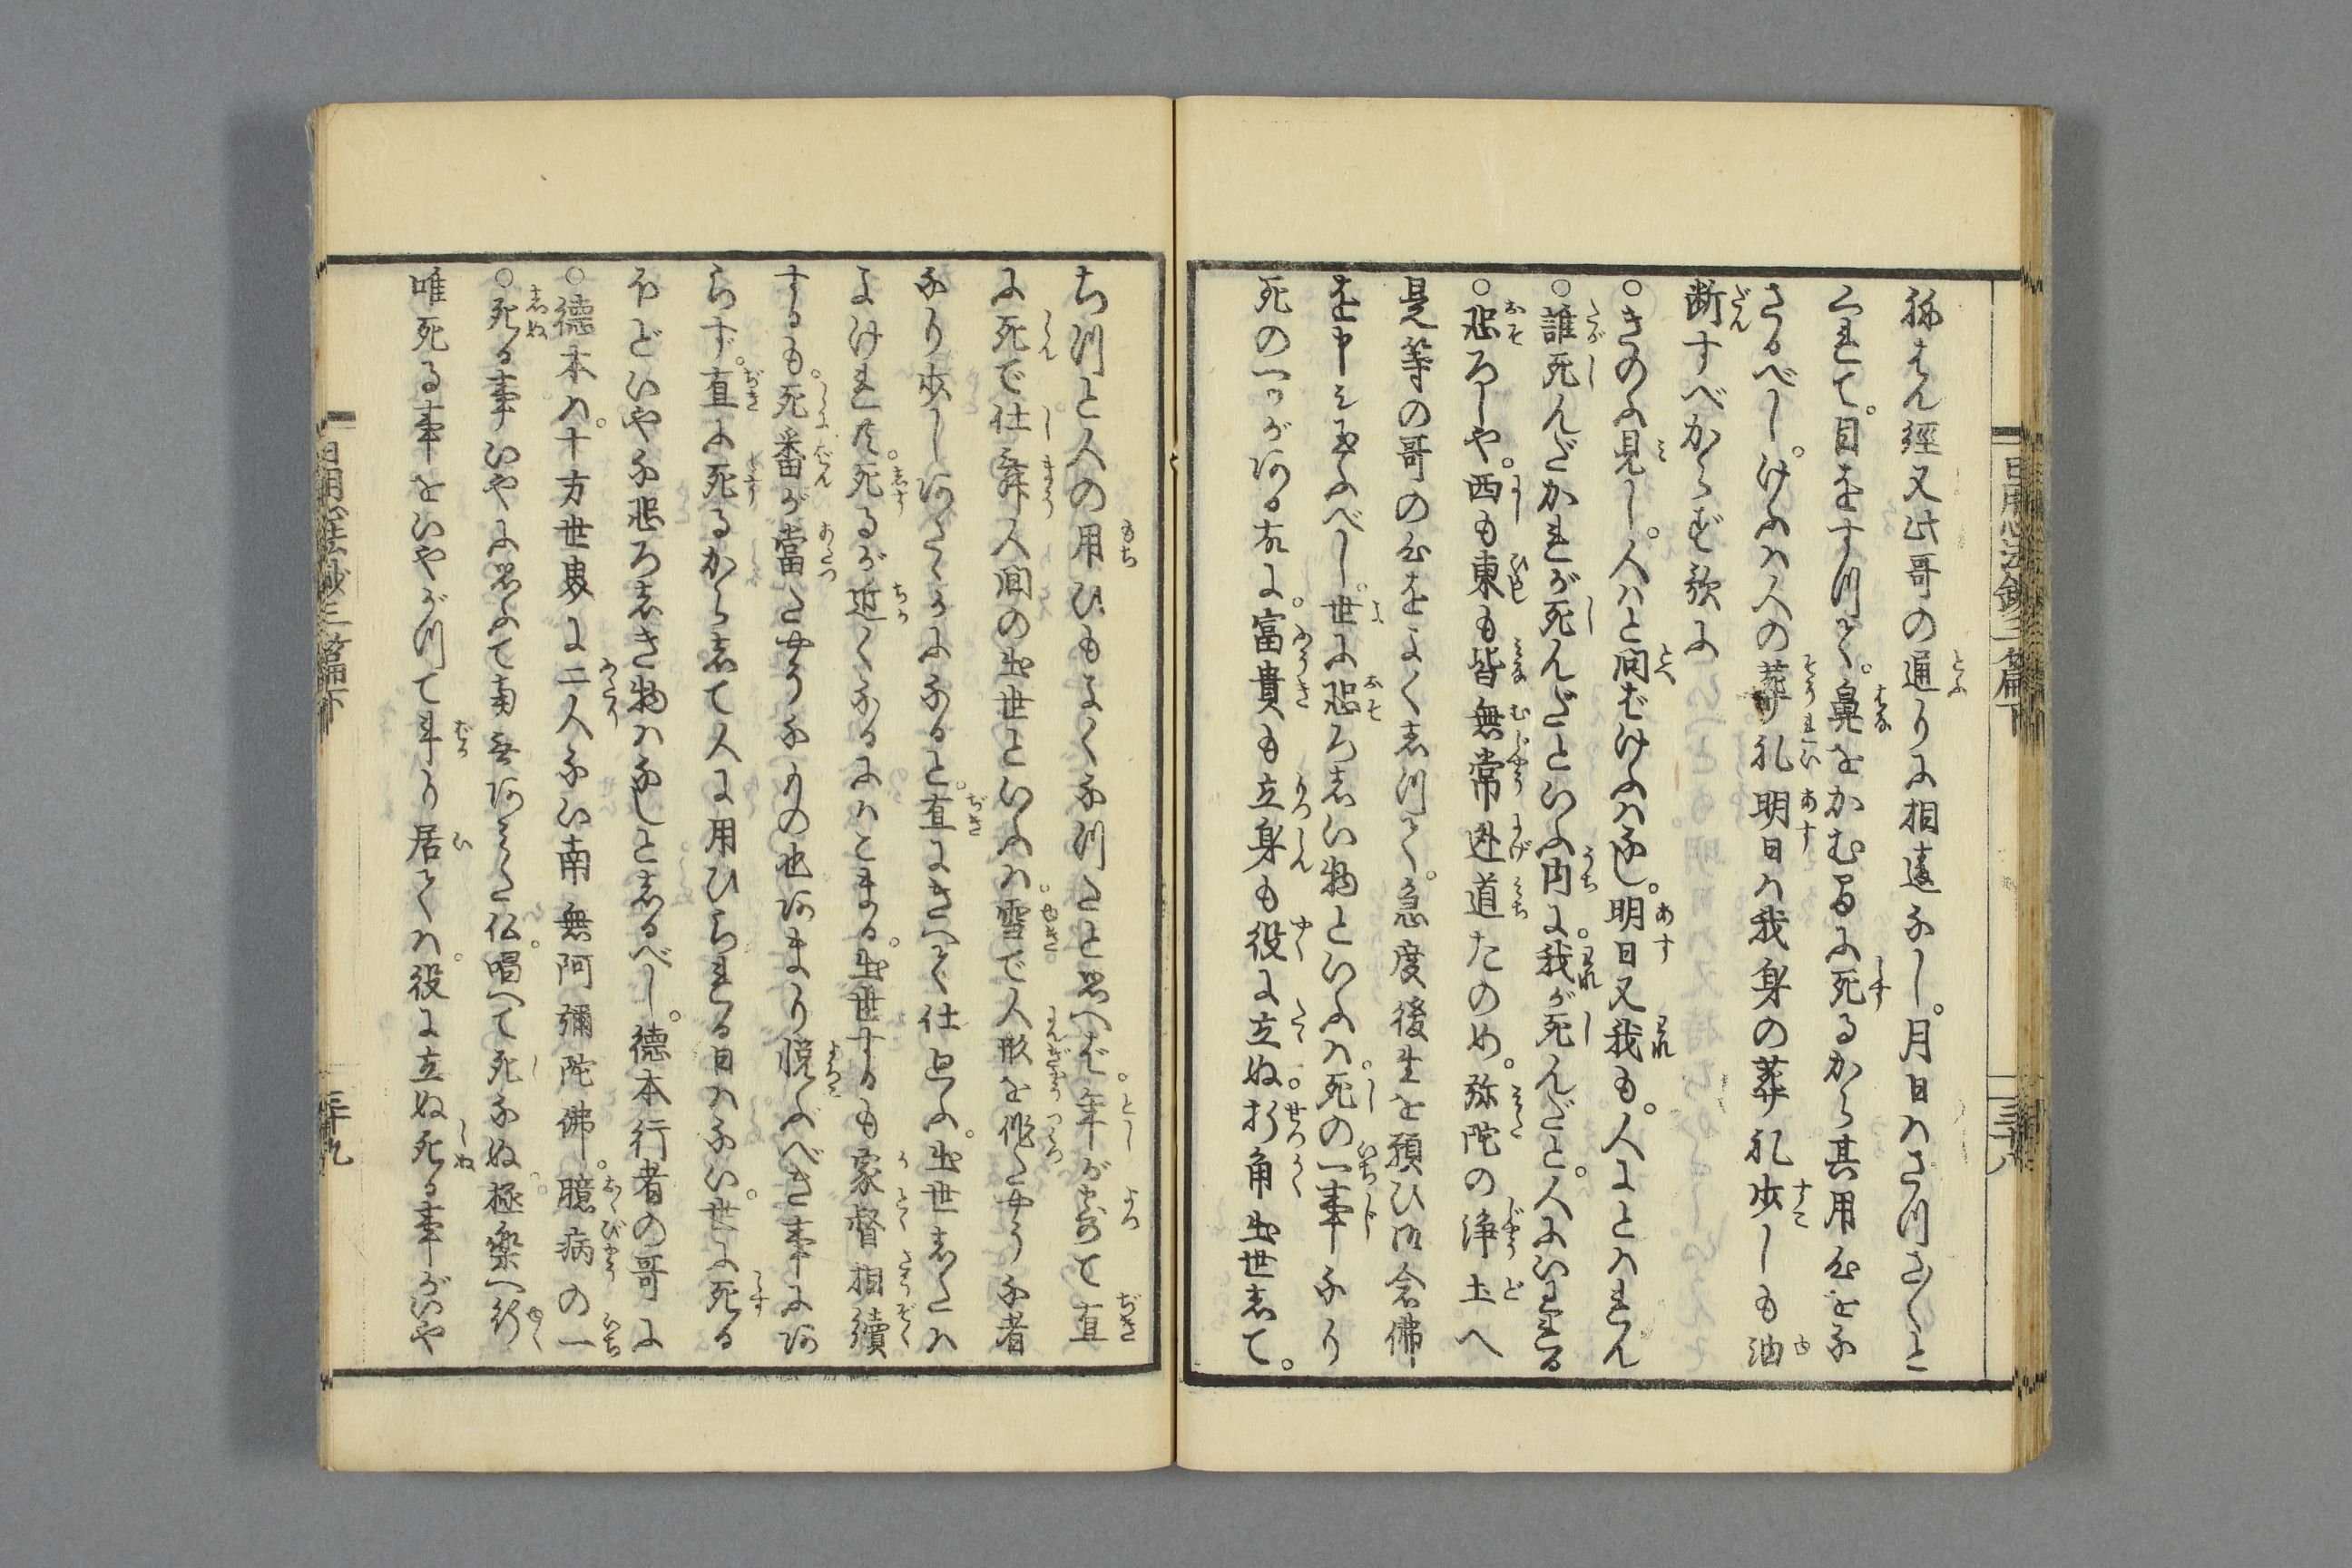 ねはん經又此哥の通りに相違なし。月日はさつさくと
くれて。目をすつく。鼻をかむ間に死るから其用心をな
さるべし。けふは人の葬礼明日は我身の葬礼少しも油
断すべからず歌に
○きのふ見し。人はと問ばけふはなし。明日又我も。人にとはれん
○誰死んだかれが死んだといふ内に。我が死んだと。人にいはれる
○恐ろしや。西も東も皆無常迯道たのめ。弥陀の浄土へ
是等の哥の心をよく志つて。急度後生を願ひ御念佛
を申し玉ふべし。世に恐ろ志い物といふは。死の一事なり
死の一つがある故に。富貴も立身も役に立ぬ。折角出世志て。
日用心法鈔三篇下
三十八
ちつと人の用ひもよくなつたと思へば。年が寄て直
に死で仕舞人間の出世といふは。雪で人形を作たやうな者
なり少しあたゝかになると。直にきへて仕廻ふ。出世志たは
よけれ共。死るが近くなるにはこまる。出世するも家督相續
するも。死番が當たやうなもの也あまり悦ぶべき事にあ
らず。直に死るから志て人に用ひられる日はない。世に死る
ほどいやな恐ろ志き物はなしと志るべし。德本行者の哥に
○德本は。十方世界に二人ない南無阿彌陀佛。臆病の一
○死る事いやに思ふて南無あみた仏。唱へて死なぬ。極樂へ行
唯死る事をいやがつて斗り居ては。役に立ぬ死る事がいや
日用心法鈔三篇下
三十九